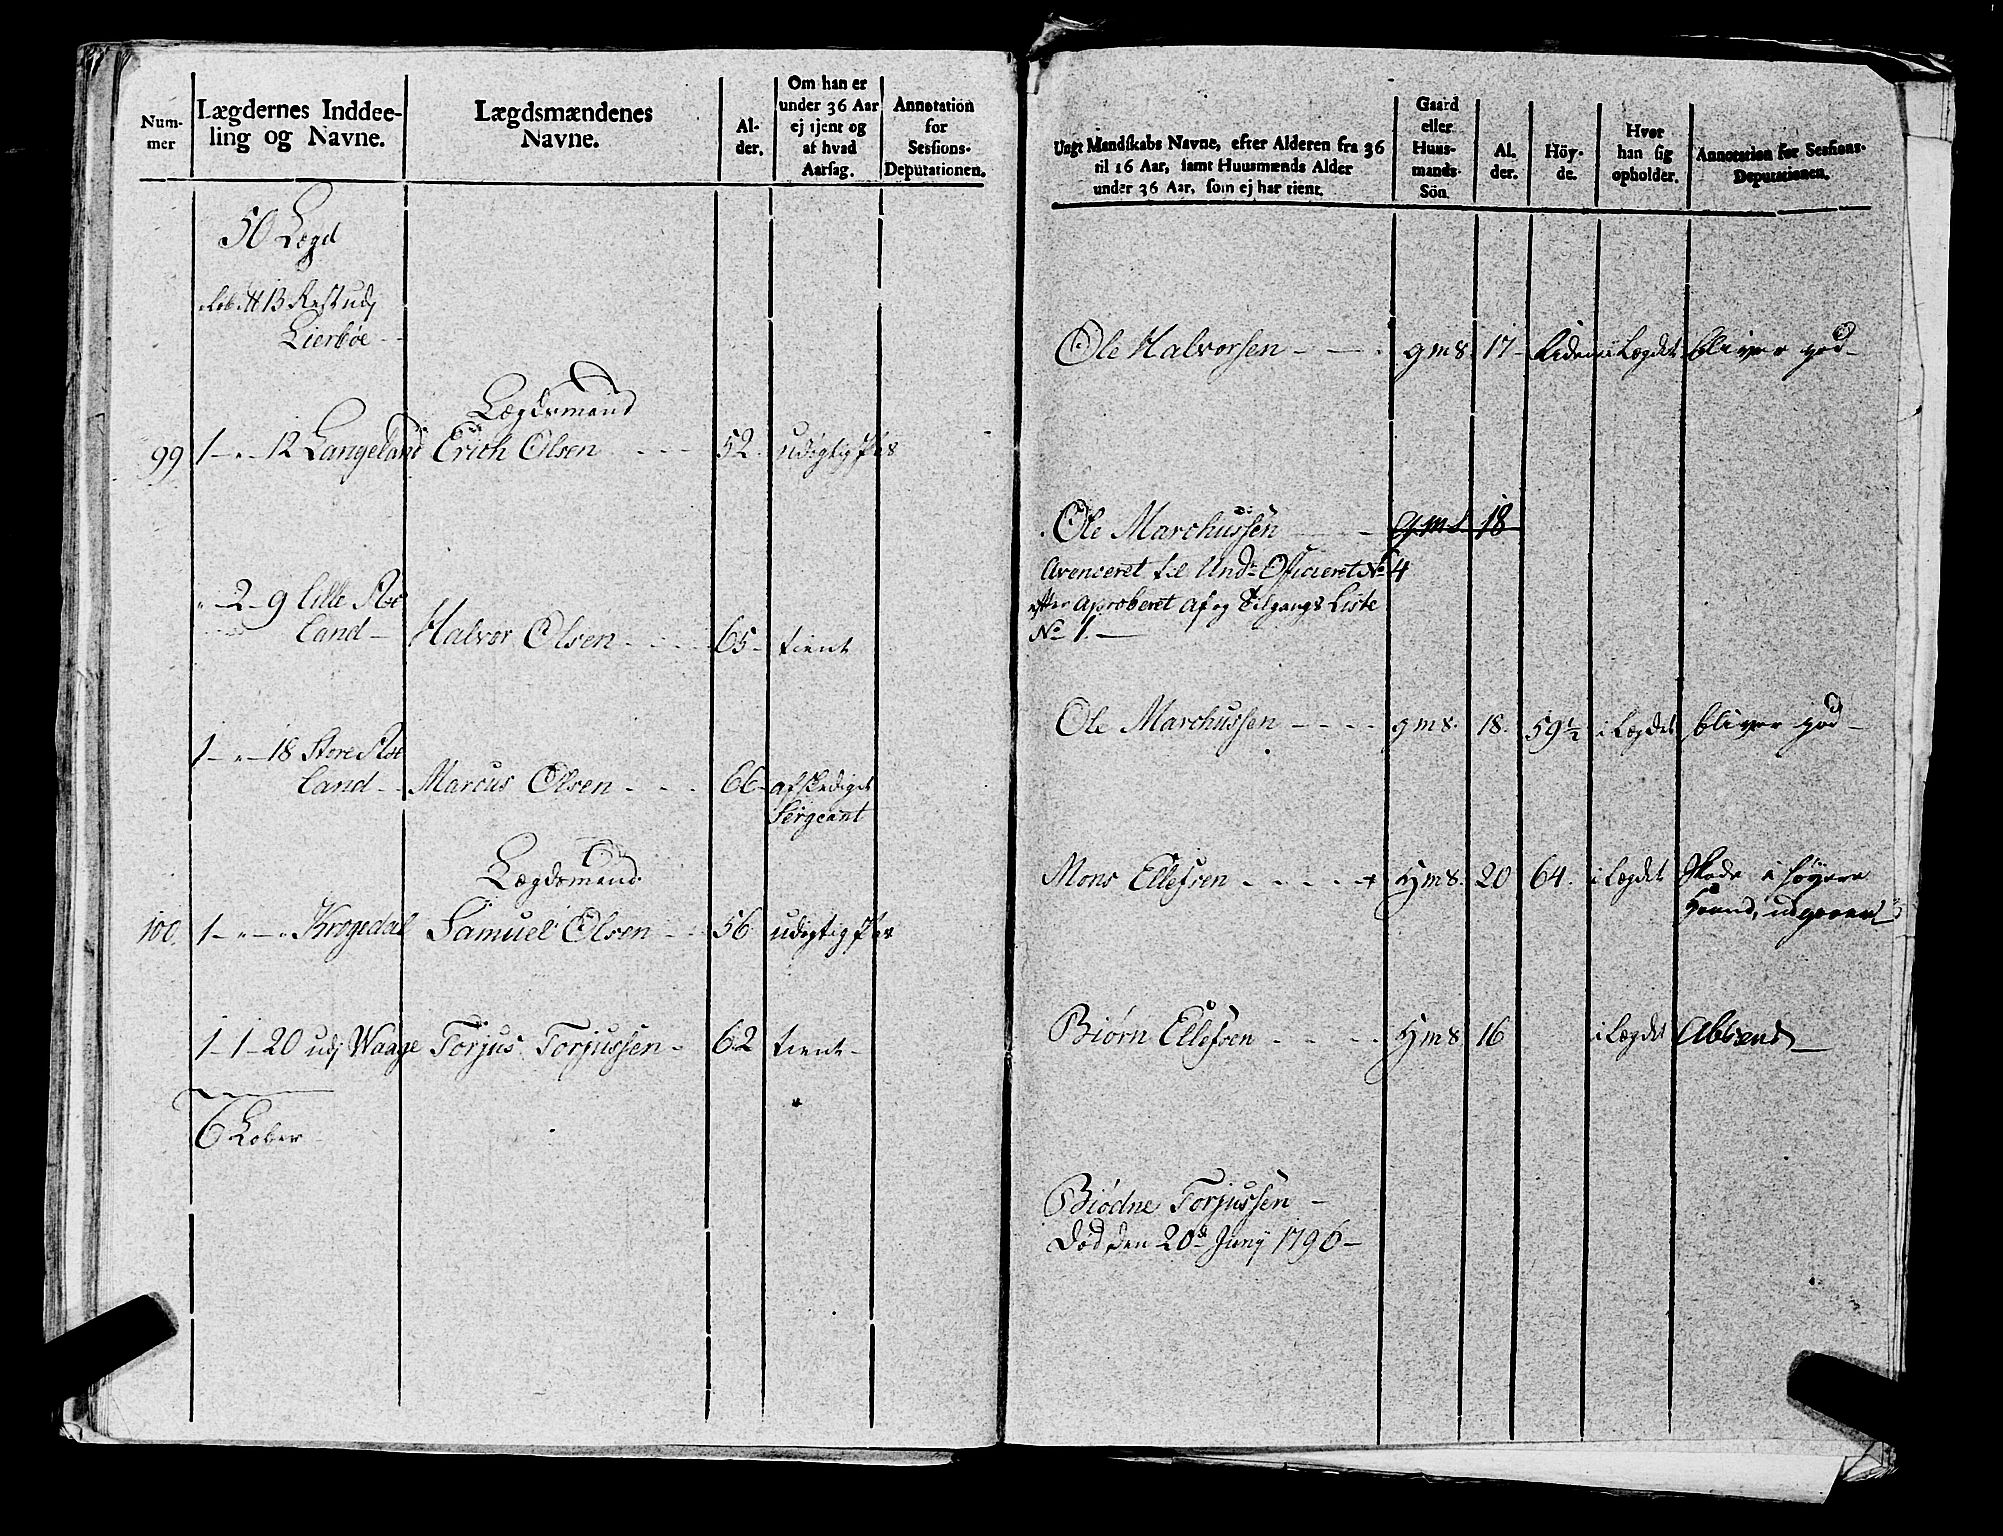 Num-
mer
Lægdernes Inddee-
ling og Navne.
Lægdsmændenes
Navne.
Al-
der.
Om han er
under 36 Aar
ej tjent og
af hvad
Aarsag.
Annotation
for
Sessions-
Deputationen.
50 Lægd
Lierbøe
Lægdsmand
99 1 - " - 12 Langeland Erich Olsen 52 udygtig
" - 2 - 9 Lille
land - Halvor Olsen 65 - tient
1 - " - 18 Store
land - Marcus Olsen 66 - afskediget
Sergeant
Lægdsmand
100. 1 - " - " Krogedal Samuel Olsen 56 udygtig
1 - 1 - 20 udj Waage Torjus Torjussen - 62 tient -
6 Lober
Ungt Mandskabs Navne, efter Alderen fra 36
til 16 Aar, samt Huusmænds Alder
under 36 Aar, som ej har tient.
Gaard
eller
Huus-
mands-
Søn.
Al-
der.
Höy-
de.
Hvor
han sig
opholder.
Annotation for Sessions-
Deputationen.
Ole Halvorsen gms. 17 - i Lægdet bliver god -
Ole Marchussen gms 18
Avenceret til Und: Officieret No 4
efter aproberet af og Tilgangs Liste
No 1. -
Ole Marchussen gms. 18. 59 1/2 i Lægdet bliver god -
Mons Ellefsen + Hms. 20 64. i Lægdet Skade i høyere
Haand,
Biørn Ellefsen Hms 16 i Lægdet Absent -
Biødne Torjussen -
Død den 20de Junij 1796 -